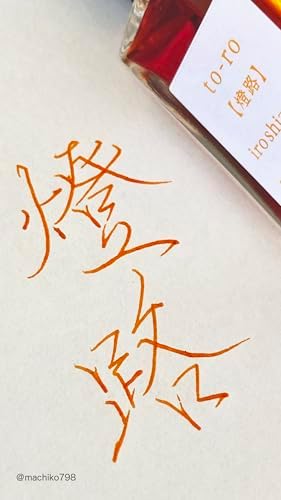 to-ro
【燈路】
iroshiz
燈
路
@machiko798